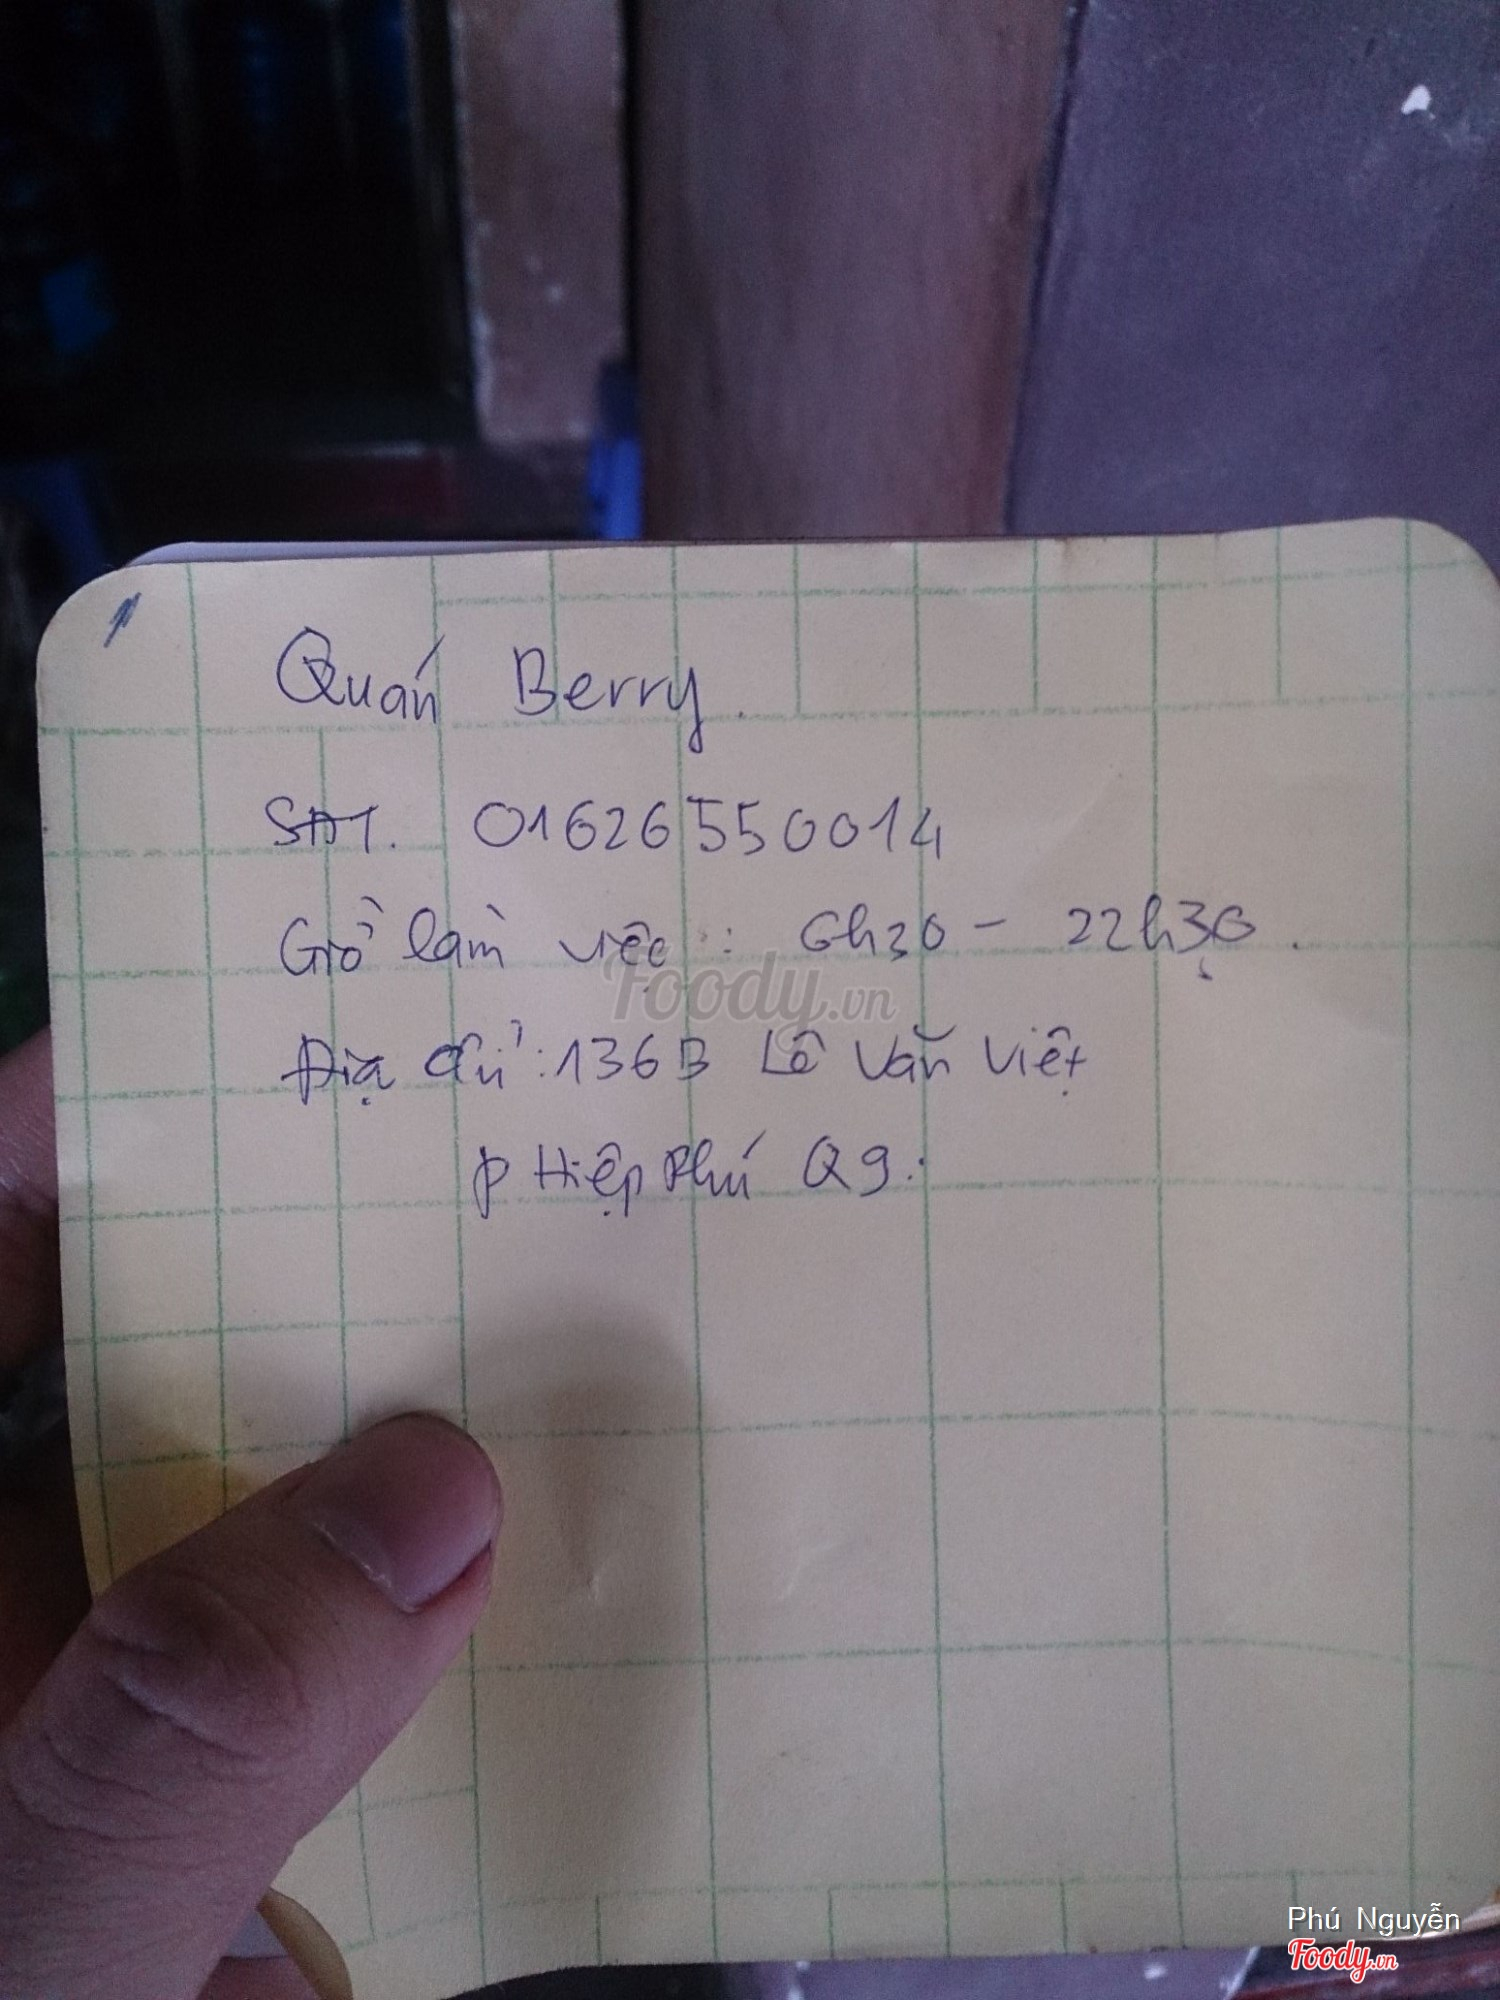 Quán Berry.
SĐT. 01626550014
Giờ làm việc : 6h30 - 22h30.
Địa chỉ : 136B Lê Văn Việt
P Hiệp Phú Q9.
Foody.vn
Phú Nguyễn
Foody.vn